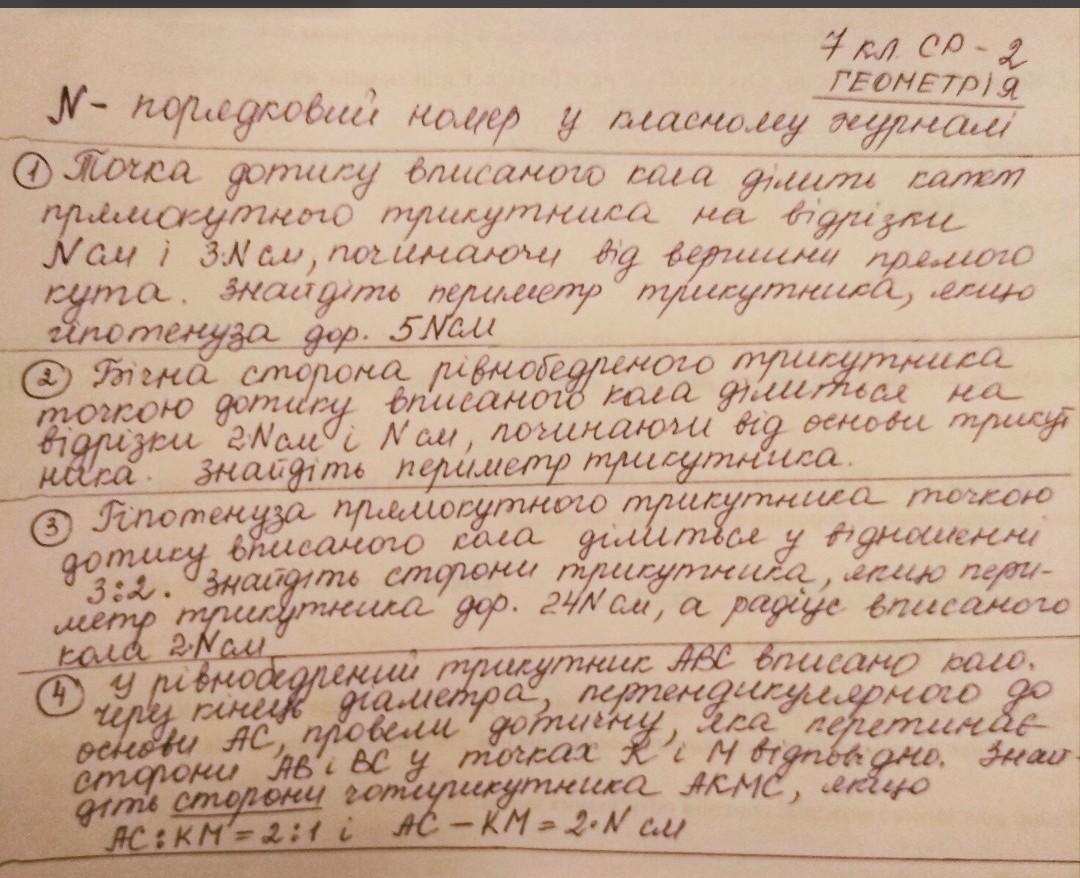 7 кл. СР - 2
ГЕОМЕТРІЯ
N - порядковий номер у класному журналі
① Точка дотику вписаного кола ділить катет
прямокутного трикутника на відрізки
N см і 3·N см, починаючи від вершини прямого
кута. Знайдіть периметр трикутника, якщо
гіпотенуза дор. 5N см
② Бічна сторона рівнобедреного трикутника
точкою дотику вписаного кола ділиться на
відрізки 2·N см і N см, починаючи від основи трикут
ника. Знайдіть периметр трикутника.
③ Гіпотенуза прямокутного трикутника точкою
дотику вписаного кола ділиться у відношенні
3:2. Знайдіть сторони трикутника, якщо пери-
метр трикутника дор. 24N см, а радіус вписаного
кола 2·N см
④ У рівнобедрений трикутник ABC вписано коло.
Через кінець діаметра, перпендикулярного до
основи AC, провели дотичну, яка перетинає
сторони AB і BC у точках K і M відповідно. Знай-
діть сторони чотирикутника AKMC, якщо
AC:KM = 2:1 і AC - KM = 2·N см